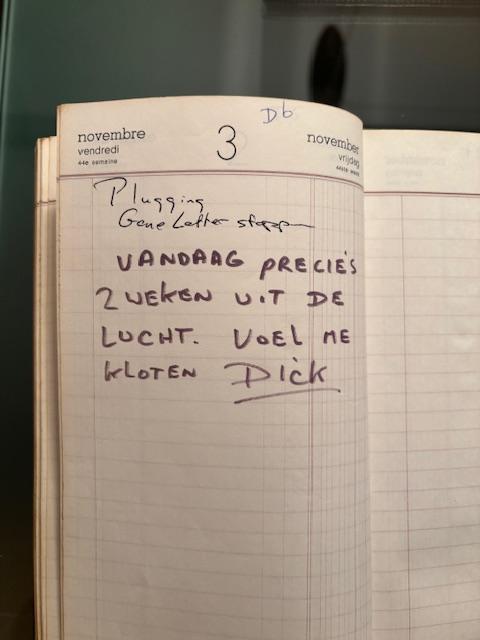 Db
novembre 3 november
vendredi vrijdag
44e semaine
Plugging
Gene Latter stoppen
VANDAAG PRECIE'S
2 WEKEN UIT DE
LUCHT. VOEL ME
KLOTEN DICK